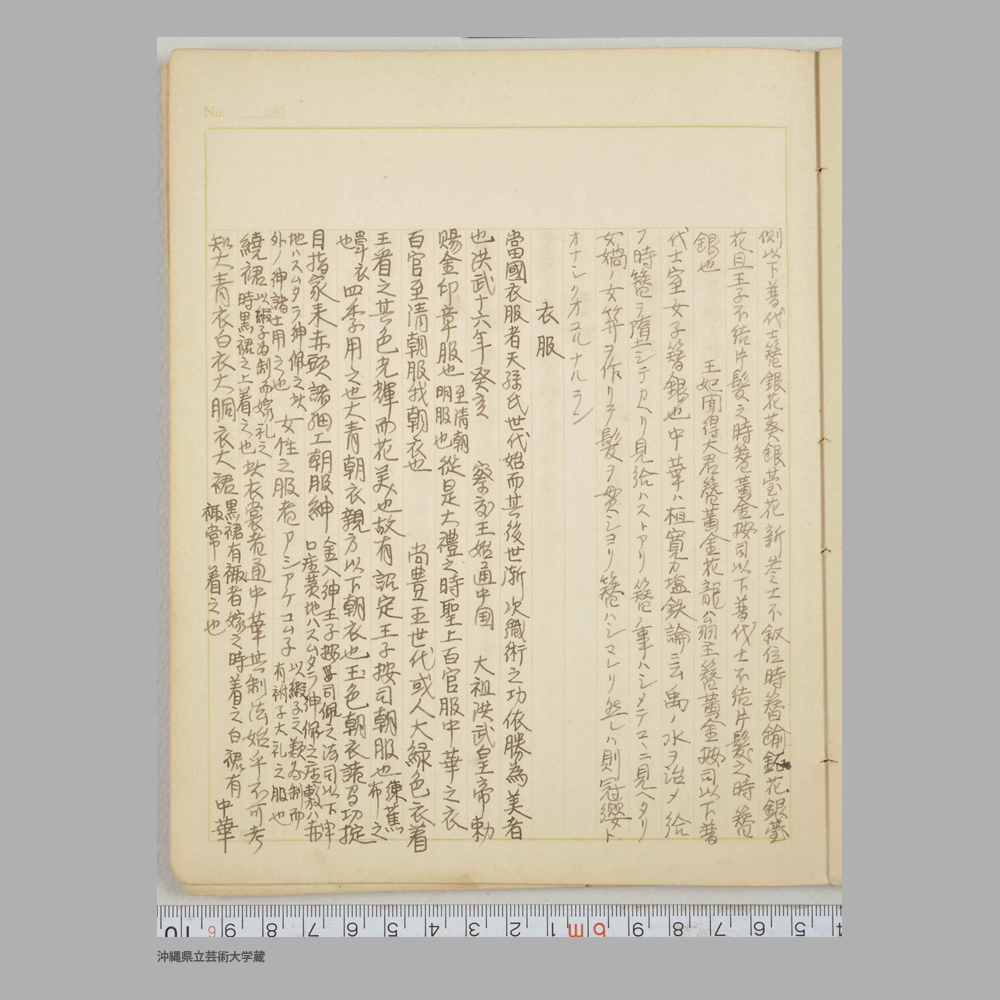 側以下普代士簪銀花葵銀莖花 新参士不叙位時簪鍮鉐花銀莖
花且王子不結片髪之時簪黄金按司以下普代士不結片髪之時簪
銀也 王妃聞得大君簪黄金花龍翁主簪黄金按司以下普
代士室女子簪銀也中華ハ桓寛カ塩鉄論ニ云禹ノ水ヲ治メ給
フ時簪ヲ墮シテカヘリ見給ハストアリ簪ノ事ハシメテコヽニ見ヘタリ
女媧ノ女笄ヲ作リテ髪ヲ貫シヨリ簪ハシマレリ然レハ則冠纓ト
オナシクオコルナルラン
衣服
當國衣服者天孫氏世代始而其後世漸次織術之功依勝為美者
也洪武十六年癸亥 察度王始通中国 大祖洪武皇帝勅
賜金印章服也 至清朝明服也 從是大禮之時聖上百官服中華之衣
百官至清朝服我朝衣也 尚豊王世代或人大緑色衣着
王看之其色光輝而花美也故有詔定王子按司朝服也 練蕉布之
畳衣也 四季用之也大青朝衣親方以下朝衣也玉色朝衣諸及功掟
目指家来赤頭諸細工朝服紳 金入紳王子按司佩之法司以下申口座黄地ハスムタラ紳佩之座敷ハ赤
地ハスムタラ紳佩之此外ノ紳諸士用之也 女性之服者アシアケコムネ 以緞子之類為制而有衻子大礼之服也
繞裙 以緞子為制而嫁礼之時黒裙之上着之也 此衣裳者通中華其制法始乎不可考
知大青衣白衣大胴衣大裙 黒裙有襠者嫁之時着之白裙有襠常着之也 中華
No.
沖縄県立芸術大学蔵